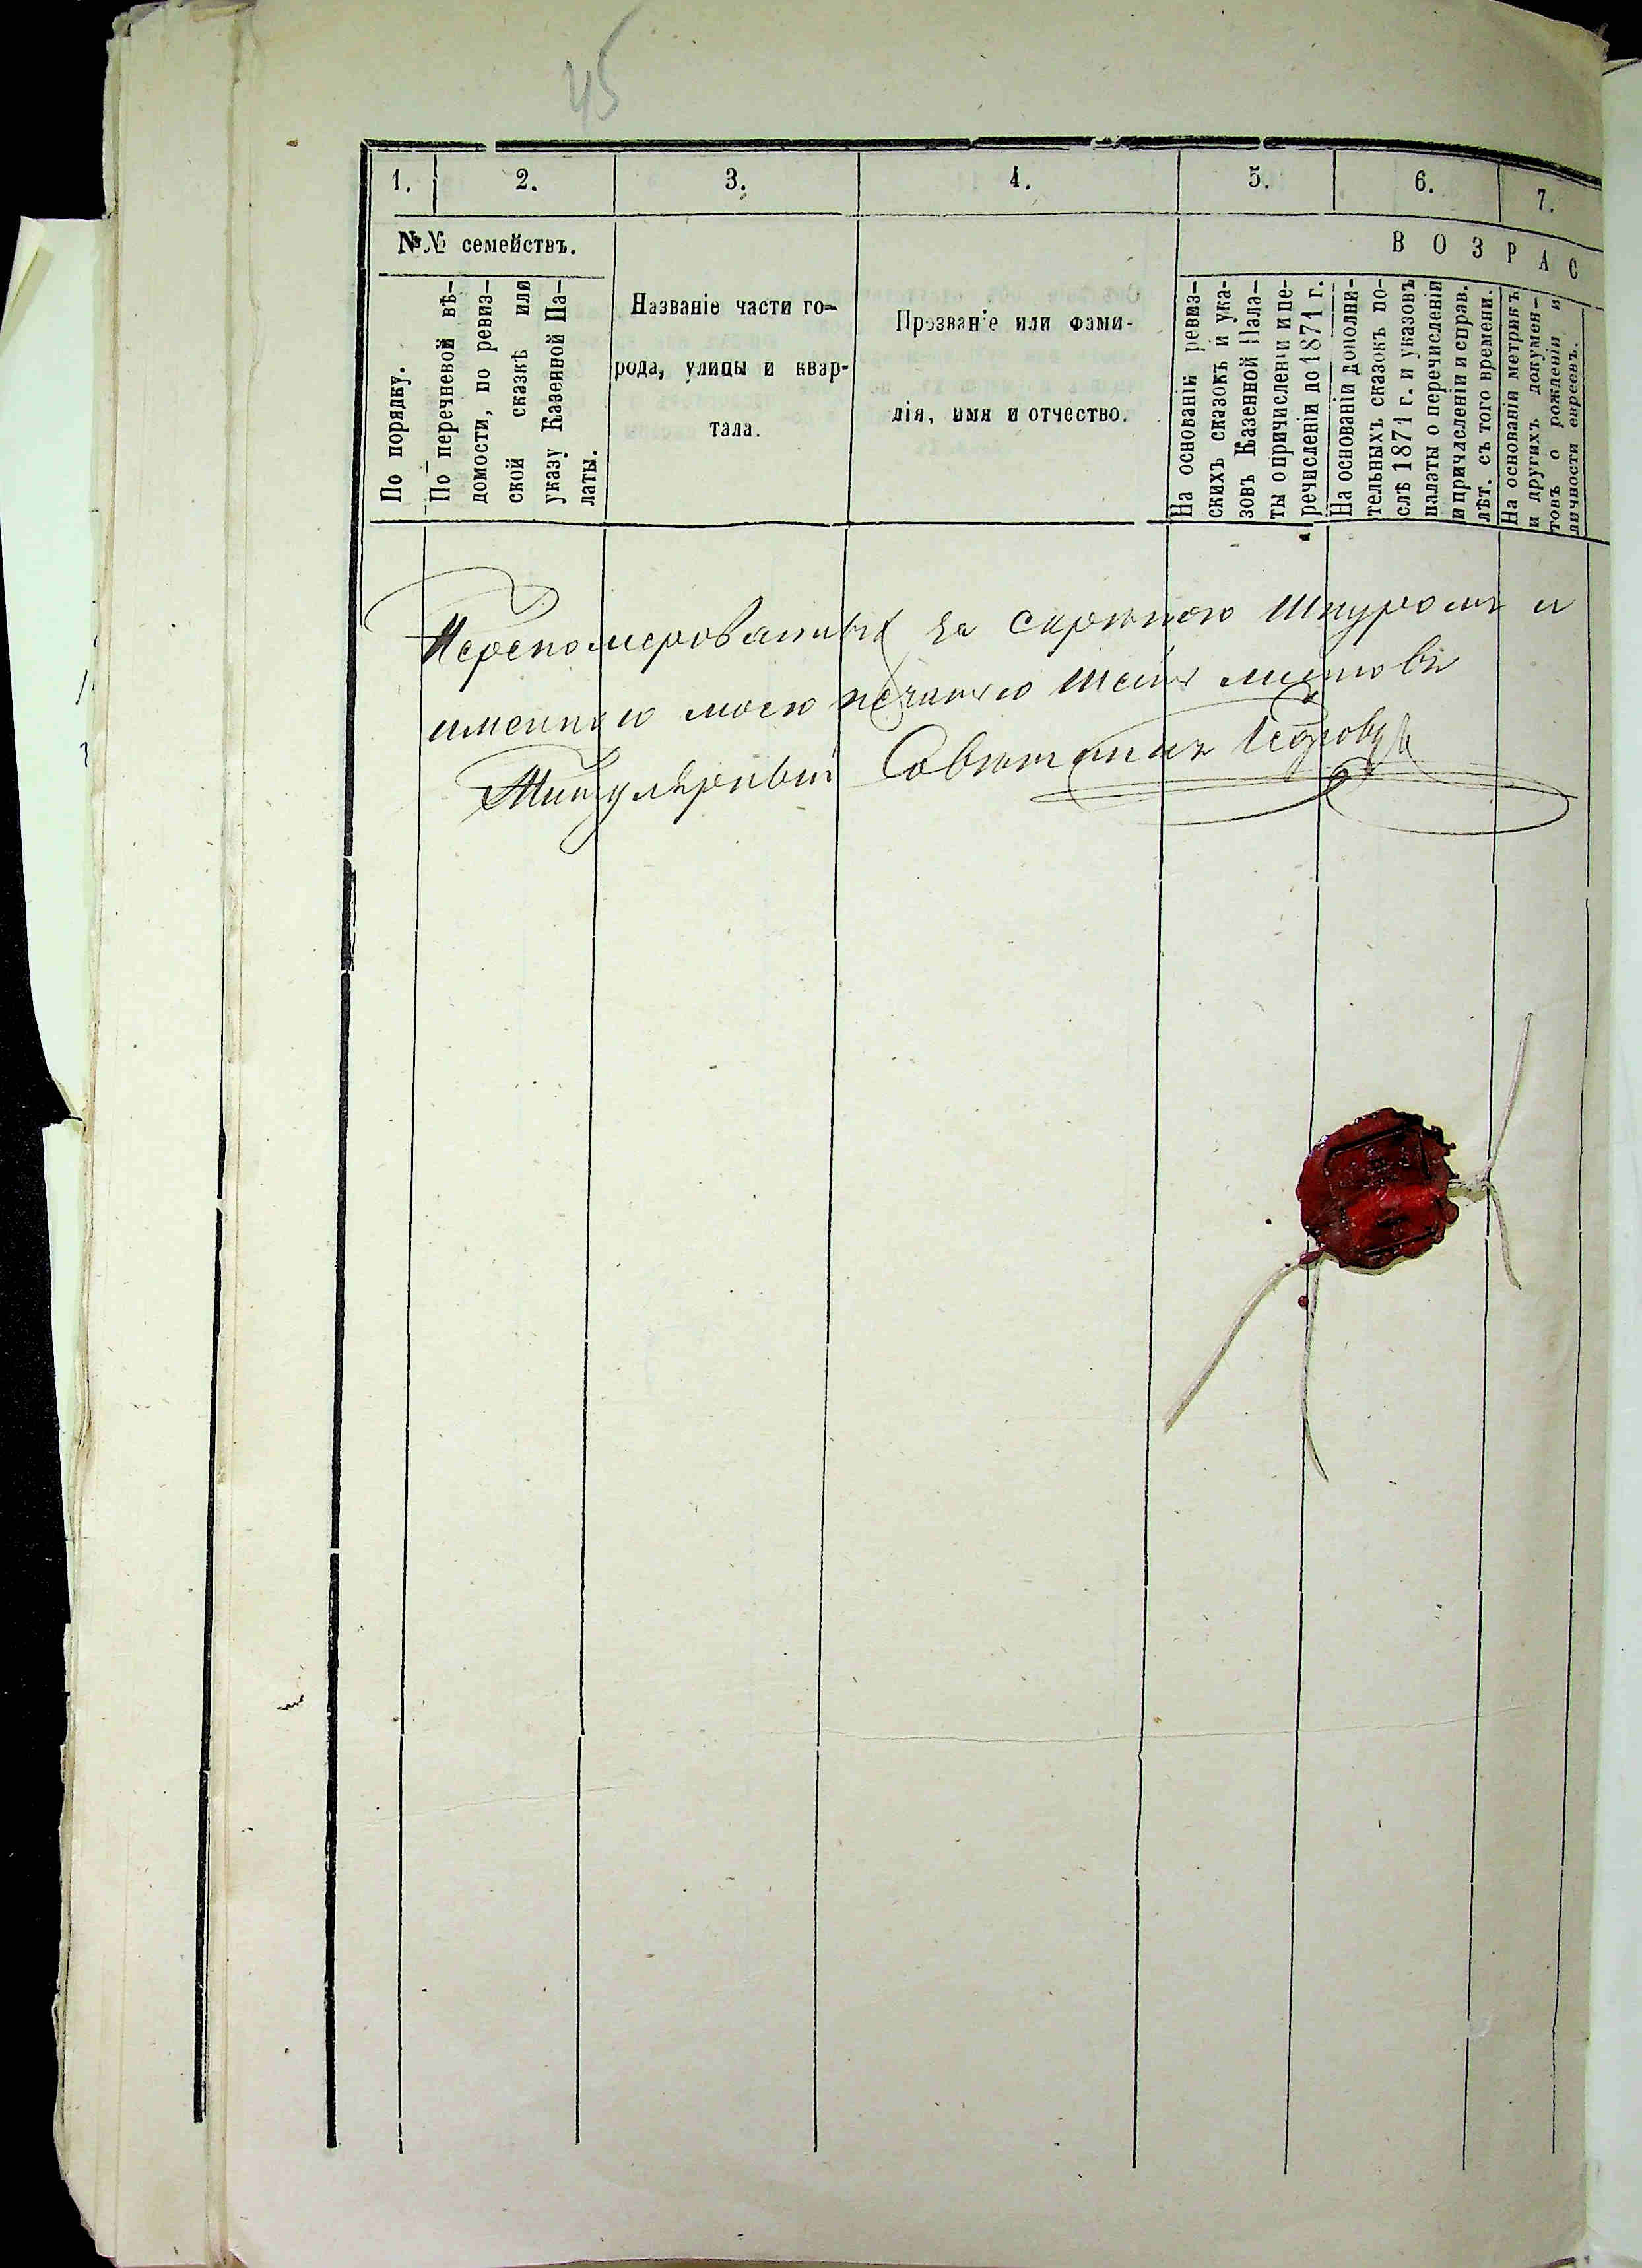 45
1. 2. 3. 4. 5. 6. 7.
№№ семействъ.
В О З Р А С
По порядку.
По перечневой вѣ-
домости, по ревиз-
ской сказкѣ или
указу Казенной Па-
латы.
Названіе части го-
рода, улицы и квар-
тала.
Прозваніе или фами-
лія, имя и отчество.
На основаніи ревиз-
скихъ сказокъ и ука-
зовъ Казенной Пала-
ты о причисленіи и пе-
речисленіи до 1871 г.
На основаніи дополни-
тельныхъ сказокъ по-
слѣ 1871 г. и указовъ
палаты о перечисленіи
и причисленіи и справ.
лѣт. съ того времени.
На основаніи метрикъ
и другихъ докумен-
товъ о рожденіи и
личности евреевъ.
Перенумерованныхъ за скрѣпою шнуромъ и
именною моею печатью шесть листовъ
Титулярный Совѣтникъ